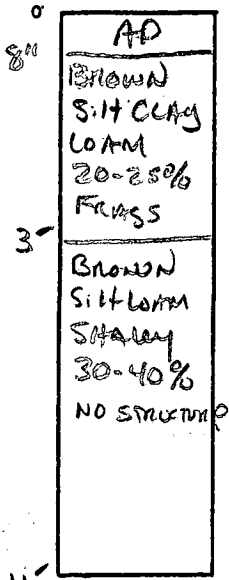 0'
AP
8"
BROWN
Silt CLAY
LOAM
20-25%
FRAGS
3'
BROWN
Silt LOAM
SHALEY
30-40%
NO STRUCTURE